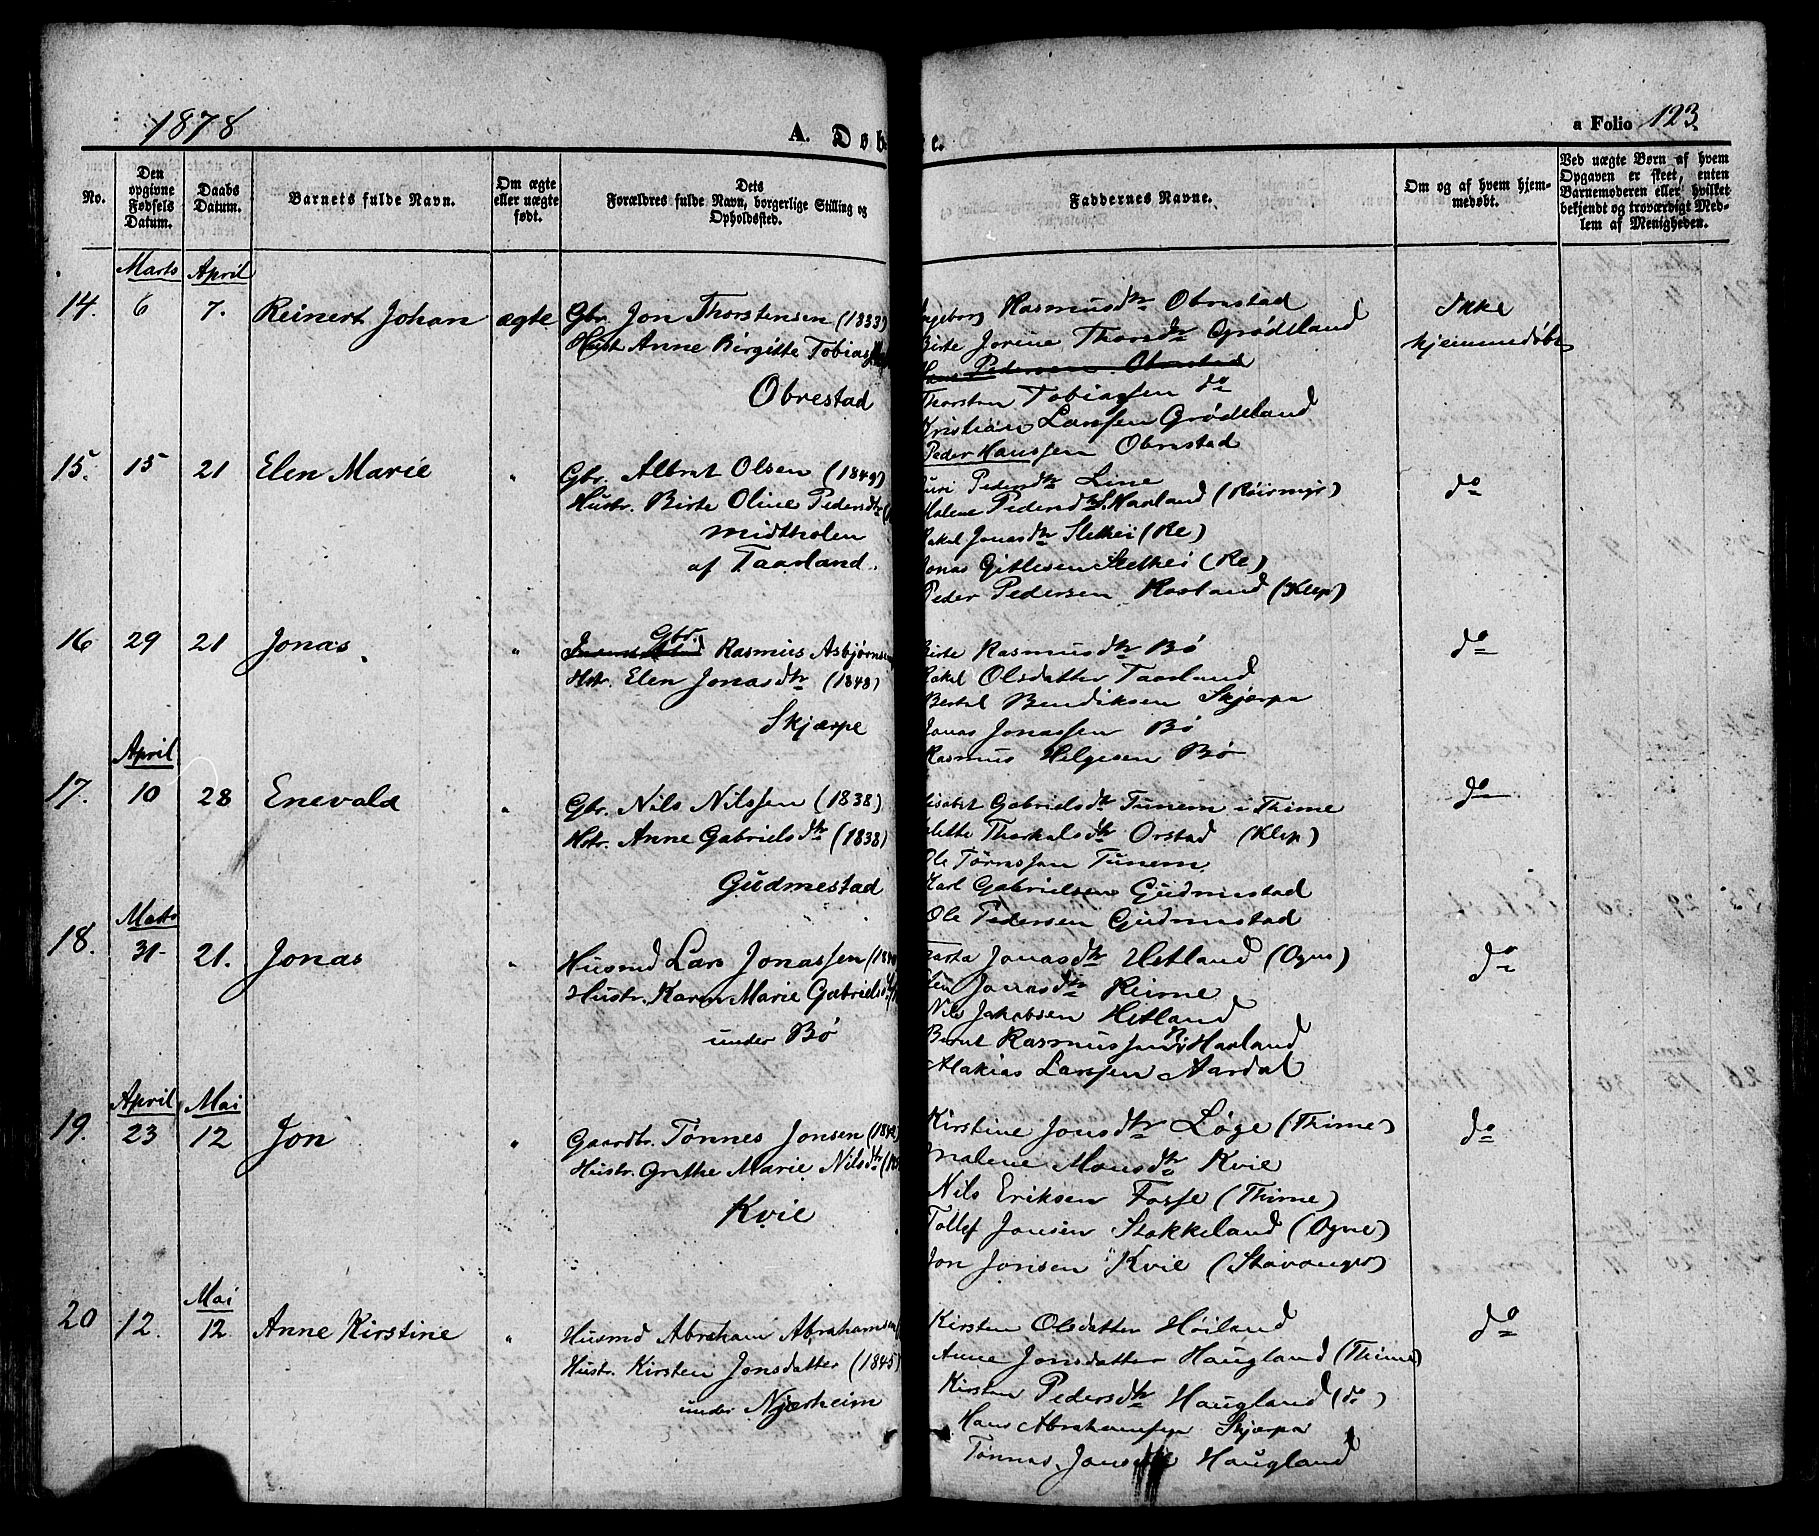 1878
A. Døbte.
a Folio 123
No.
Den opgivne Fødsels Datum.
Daabs Datum.
Barnets fulde Navn.
Om ægte eller uægte født.
Dets Forældres fulde Navn, borgerlige Stilling og Opholdssted.
Faddernes Navne.
Om og af hvem hjemmedøbt.
Ved uægte Børn af hvem Opgaven er skeet, enten Barnemoderen eller hvilket bekjendt og troværdigt Medlem af Menigheden.
Marts April
14. 6 7. Reinert Johan ægte Gbr. Jon Thorstensen (1833)
Hust Anne Birgitte Tobias
Obrestad
Ingeborg Rasmusdtr Obrestad
Birte Jorine Thorsdtr Grødeland
Hans Pedersen Obrestad
Thorsten Tobiassen do
Kristian Larssen Grødeland
Peder Hanssen Obrestad
Ikke
hjemmedøbt
15. 15 21 Elen Marie " Gbr. Albret Olsen (1849)
Hustr. Birte Oline Pedersdtr
Midtholen
af Taarland.
Guri Pedersdtr Line
Malene Pedersdtr S. Haaland (Röirmyr)
Rakel Jonasdtr Slethei (Re)
Jonas Gitlesen Slethei (Re)
Peder Pedersen Haaland (Klep)
do
16 29 21 Jonas. " Gbr. Rasmus Asbjørnsen
Hstr. Elen Jonasdtr (1848)
Skjærpe
Birte Rasmusdtr Bø
Rakel Olsdatter Taarland
Bertel Bendiksen Skjærpe
Jonas Jonassen Bø
Rasmus Helgesen Bø
do
April
17. 10 28 Enevald " Gbr. Nils Nilssen (1838)
Hstr. Anne Gabrielsdtr (1838)
Gudmestad
Elisabet Gabrielsdtr Tunem i Thime
Thorkelsdtr Orstad (Klep)
Ole Tørressen Tunem
Karl Gabrielsen Gudmestad
Ole Pedersen Gudmestad
do
Marts
18. 31 21. Jonas " Husmd Lars Jonassen
Hustr. Karen Marie Gabriels
under Bø
Marta Jonasdtr Hetland (Ogne)
Elen Jonasdtr Reime
Nils Jakobsen Hetland
Bernt Rasmussen N. Haaland
Malakias Larssen Aardal
do
April Mai
19. 23 12 Jon " Gaardbr. Tønnes Jonsen
Hustr. Grethe Marie Nilsdtr
Kvie
Kirstine Jonsdtr Løge (Thime)
Malene Monsdtr Kvie
Nils Eriksen Fosse (Thime)
Tollef Jonsen Stokkeland (Ogne)
Jon Jonsen Kvie (Stavanger)
do
Mai
20 12. 12 Anne Kirstine " Husmd Abraham Abrahamsen
Hustr. Kirsten Jonsdatter (1845)
under Njærheim
Kirsten Olsdatter Høiland
Anne Jonsdatter Haugland (Thime)
Kirsten Pedersdtr Haugland (do)
Hans Abrahamsen Skjærpe
Tønnes Haugland
do